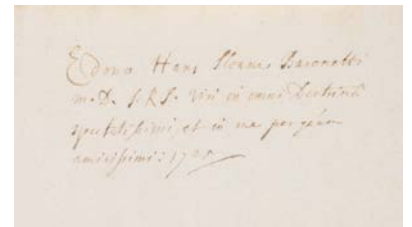 E dono Hans Sloane Baronetti
M.D. S.R.S. viri in omni Doctrinâ
spectatissimi, et in me per
amicissimi: 17